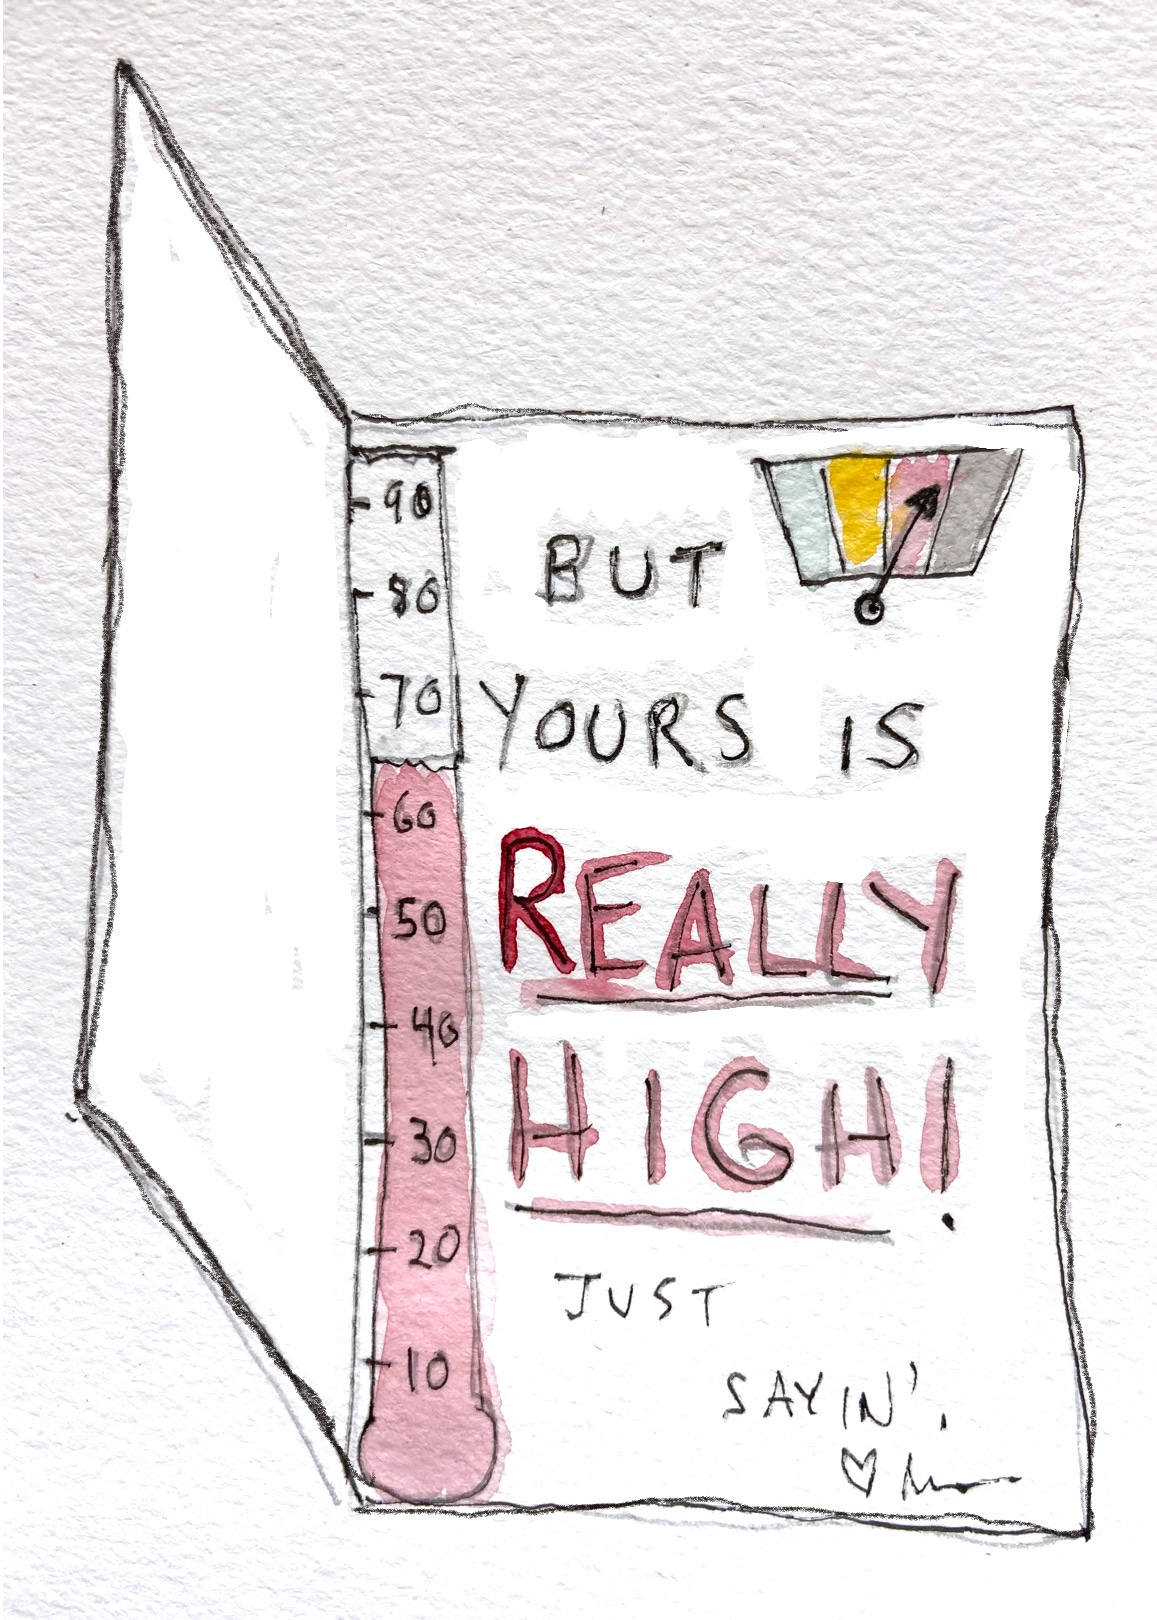 90
80
70
60
50
40
30
20
10
BUT
YOURS IS
REALLY
HIGH!
JUST
SAYIN'.